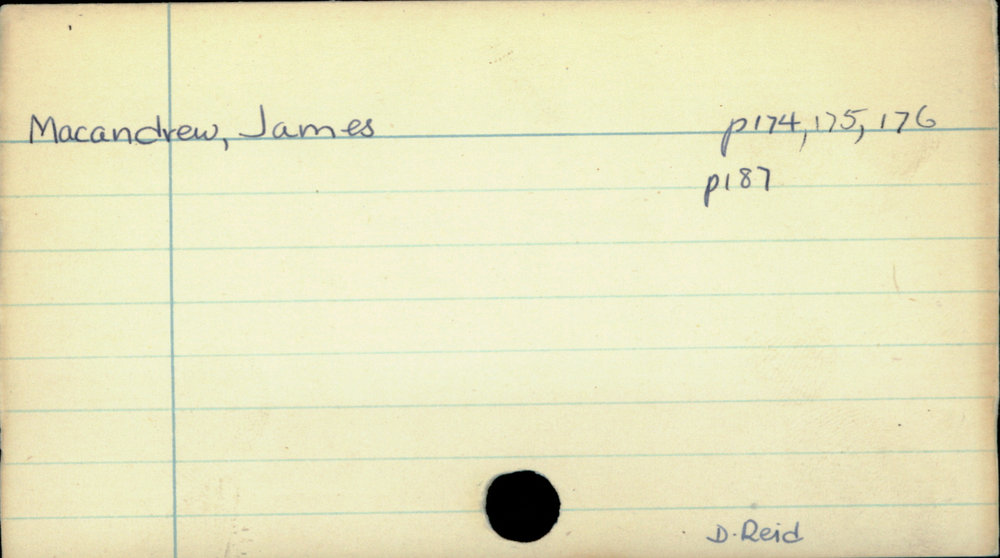 Macandrew, James p174, 175, 176
p187
D. Reid